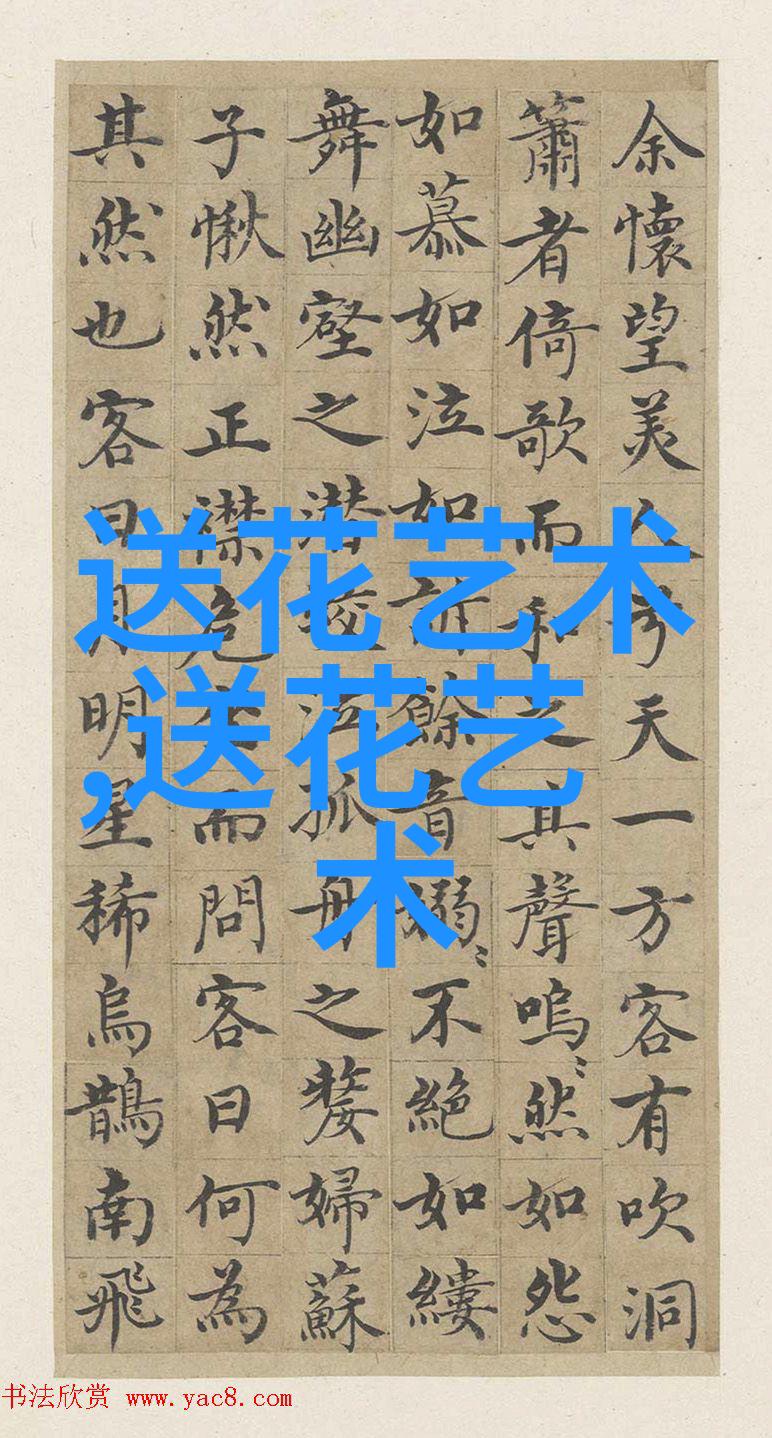 余懷望美人兮天一方客有吹洞
簫者倚歌而和之其聲嗚〻然如怨
如慕如泣如訴餘音嫋〻不絕如縷
舞幽壑之潛蛟泣孤舟之嫠婦蘇
子愀然正襟危坐而問客曰何為
其然也客曰月明星稀烏鵲南飛
送花艺术
,送花艺
术
书法欣赏 www.yac8.com